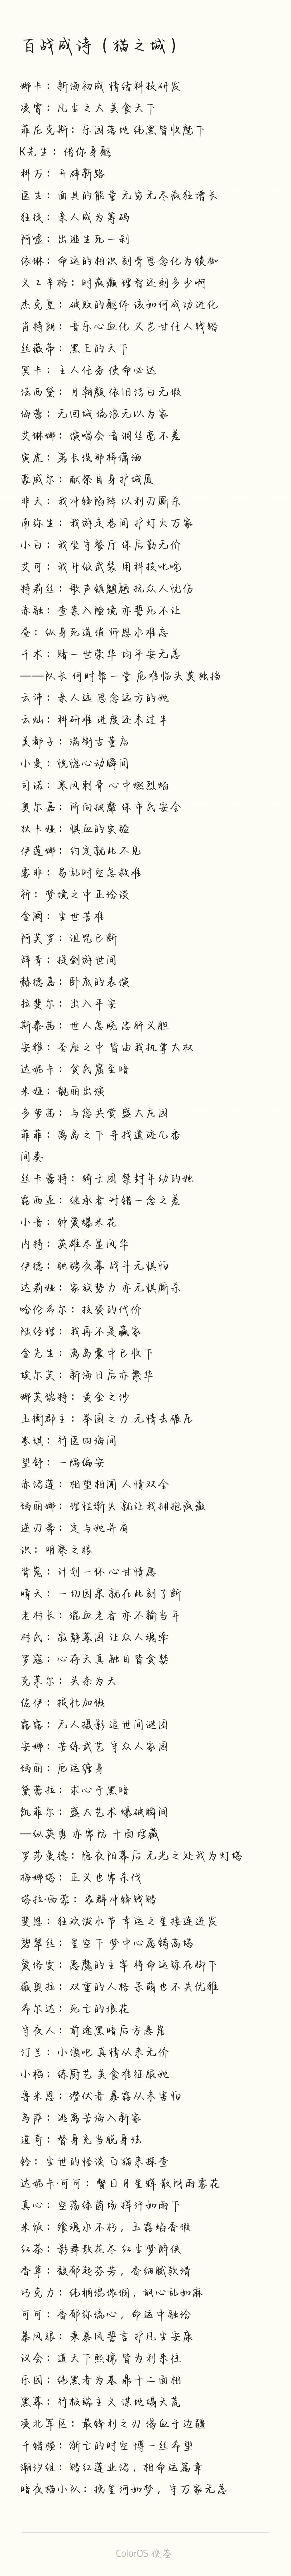 百战成诗（猫之城）
娜卡：新海初成 情倩科技研发
凌霄：凡尘之大 美食天下
菲尼克斯：乐园落地 纯黑皆收麾下
K先生：借你身躯
科万：开辟新路
医生：面具的能量 无穷无尽疯狂增长
狂徒：亲人成为筹码
阿嚏：出逃生死一刹
依琳：命运的相识 刻骨思念化为镣枷
义工辛格：时疯癫 理智还剩多少啊
杰克皇：破败的躯体 该如何成功进化
肖特朗：音乐心血化 又岂甘任人践踏
丝薇蒂：黑王的天下
冥卡：主人任务 使命必达
法西黛：月朝馥 依旧洁白无瑕
海蕾：无回城 流浪无以为家
艾琳娜：演唱会 音调丝毫不差
寅虎：署长没那样潇洒
豪威尔：献祭自身护城厦
非天：我冲锋陷阵 以利刃厮杀
南弥生：我游走巷间 护灯火万家
小白：我坐守餐厅 保后勤无价
艾可：我升级武装 用科技叱咤
特莉丝：歌声镇魍魉 抚众人忧伤
赤融：查案入险境 亦誓死不让
昼：纵身死道消 师恩永难忘
千术：赌一世荣华 均平安无恙
——队长 何时聚一堂 危难临头莫独挡
云沛：亲人远 思念远方的她
云灿：科研难 进度还未过半
美都子：满街古董店
小曼：恍惚心动瞬间
司诺：寒风刺骨 心中燃烈焰
奥尔嘉：所向披靡 保市民安全
狄卡娅：惧血的实验
伊莲娜：约定就此不见
雾非：易乱时空怎敌难
祈：梦境之中正洽谈
金阙：尘世苦难
阿芙罗：诅咒已断
辞青：提剑游世间
赫德嘉：卧底的表演
拉斐尔：出入平安
斯泰茜：世人怎晓 忠肝义胆
安雅：圣座之中 皆由我执掌大权
达妮卡：贫民窟至暗
米娅：靓丽出演
多萝茜：与您共赏 盛大庄园
菲菲：离岛之下 寻找遗迹几番
间奏
丝卡蕾特：骑士团 禁封年幼的她
露西亚：继承者 对错一念之差
小音：钟爱爆米花
内特：英雄尽显风华
伊德：驰骋夜幕 战斗无惧怕
达莉娅：家族势力 亦无惧厮杀
哈伦希尔：投资的代价
陆经理：我再不是赢家
金先生：离岛囊中已收下
埃尔芙：新海日后亦繁华
娜芙瑞特：黄金之沙
玉衡郡主：举国之力 无情去碾压
寒祺：行医四海间
望舒：一隅偏安
赤诏莲：相望相闻 人情双全
玛丽娜：理性渐失 就让我拥抱疯癫
逆刃斋：定与她并肩
识：明察之眼
背嵬：计划一环 心甘情愿
晴天：一切因果 就在此刻了断
老村长：混血老者 亦不输当年
村民：寂静墓园 让众人魂牵
罗寇：心存天真 触目皆贪婪
克莱尔：头条为大
佐伊：报社加班
露露：无人摄影 追世间谜团
安娜：苦练武艺 守众人家园
玛丽：厄运缠身
黛蕾拉：求心于黑暗
凯菲尔：盛大艺术 爆破瞬间
—纵英勇 亦需防 十面埋藏
罗莎曼德：隐夜阳幕后 无光之处我为灯塔
梅娜塔：正义也需杀伐
塔拉·西蒙：象群冲锋践踏
斐恩：狂欢泼水节 幸运之星接连迸发
碧翠丝：星空下 梦中心愿铸高塔
爱洛宠：恶魔的主宰 将命运踩在脚下
薇奥拉：双重的人格 呆萌也不失优雅
希尔达：死亡的浪花
守夜人：前途黑暗后方悬崖
汀兰：小酒吧 真情从来无价
小稻：练厨艺 美食难征服她
鲁米恩：潜伏者 暴露从来害怕
乌萨：逃离苦海入新家
道奇：替身充当脱身法
铃：尘世的怪谈 白猫来探查
达妮卡·可可：瞥日月星辉 散阴雨雾花
真心：空荡绿茵场 挥汗如雨下
米饭：飨魂永不朽，玉露焰香椒
红茶：影舞散花尽 红尘梦醉侠
香草：馥郁起芬芳，香细腻软滑
巧克力：纯稠混浓润，飒心乱如麻
可可：香郁弥流心，命运中融洽
暴风眼：秉暴风誓言 护凡尘安康
议会：道天下熙攘 皆为利来往
乐园：纯黑者为基 鼎十二面相
黑幕：行极端主义 谋地塌天荒
凌北军区：最锋利之刃 渴血于边疆
千错楼：渐亡的时空 博一丝希望
潮汐组：踏红莲业沼，相命运篇章
暗夜猫小队：揽星河如梦，守万家无恙
ColorOS 便签